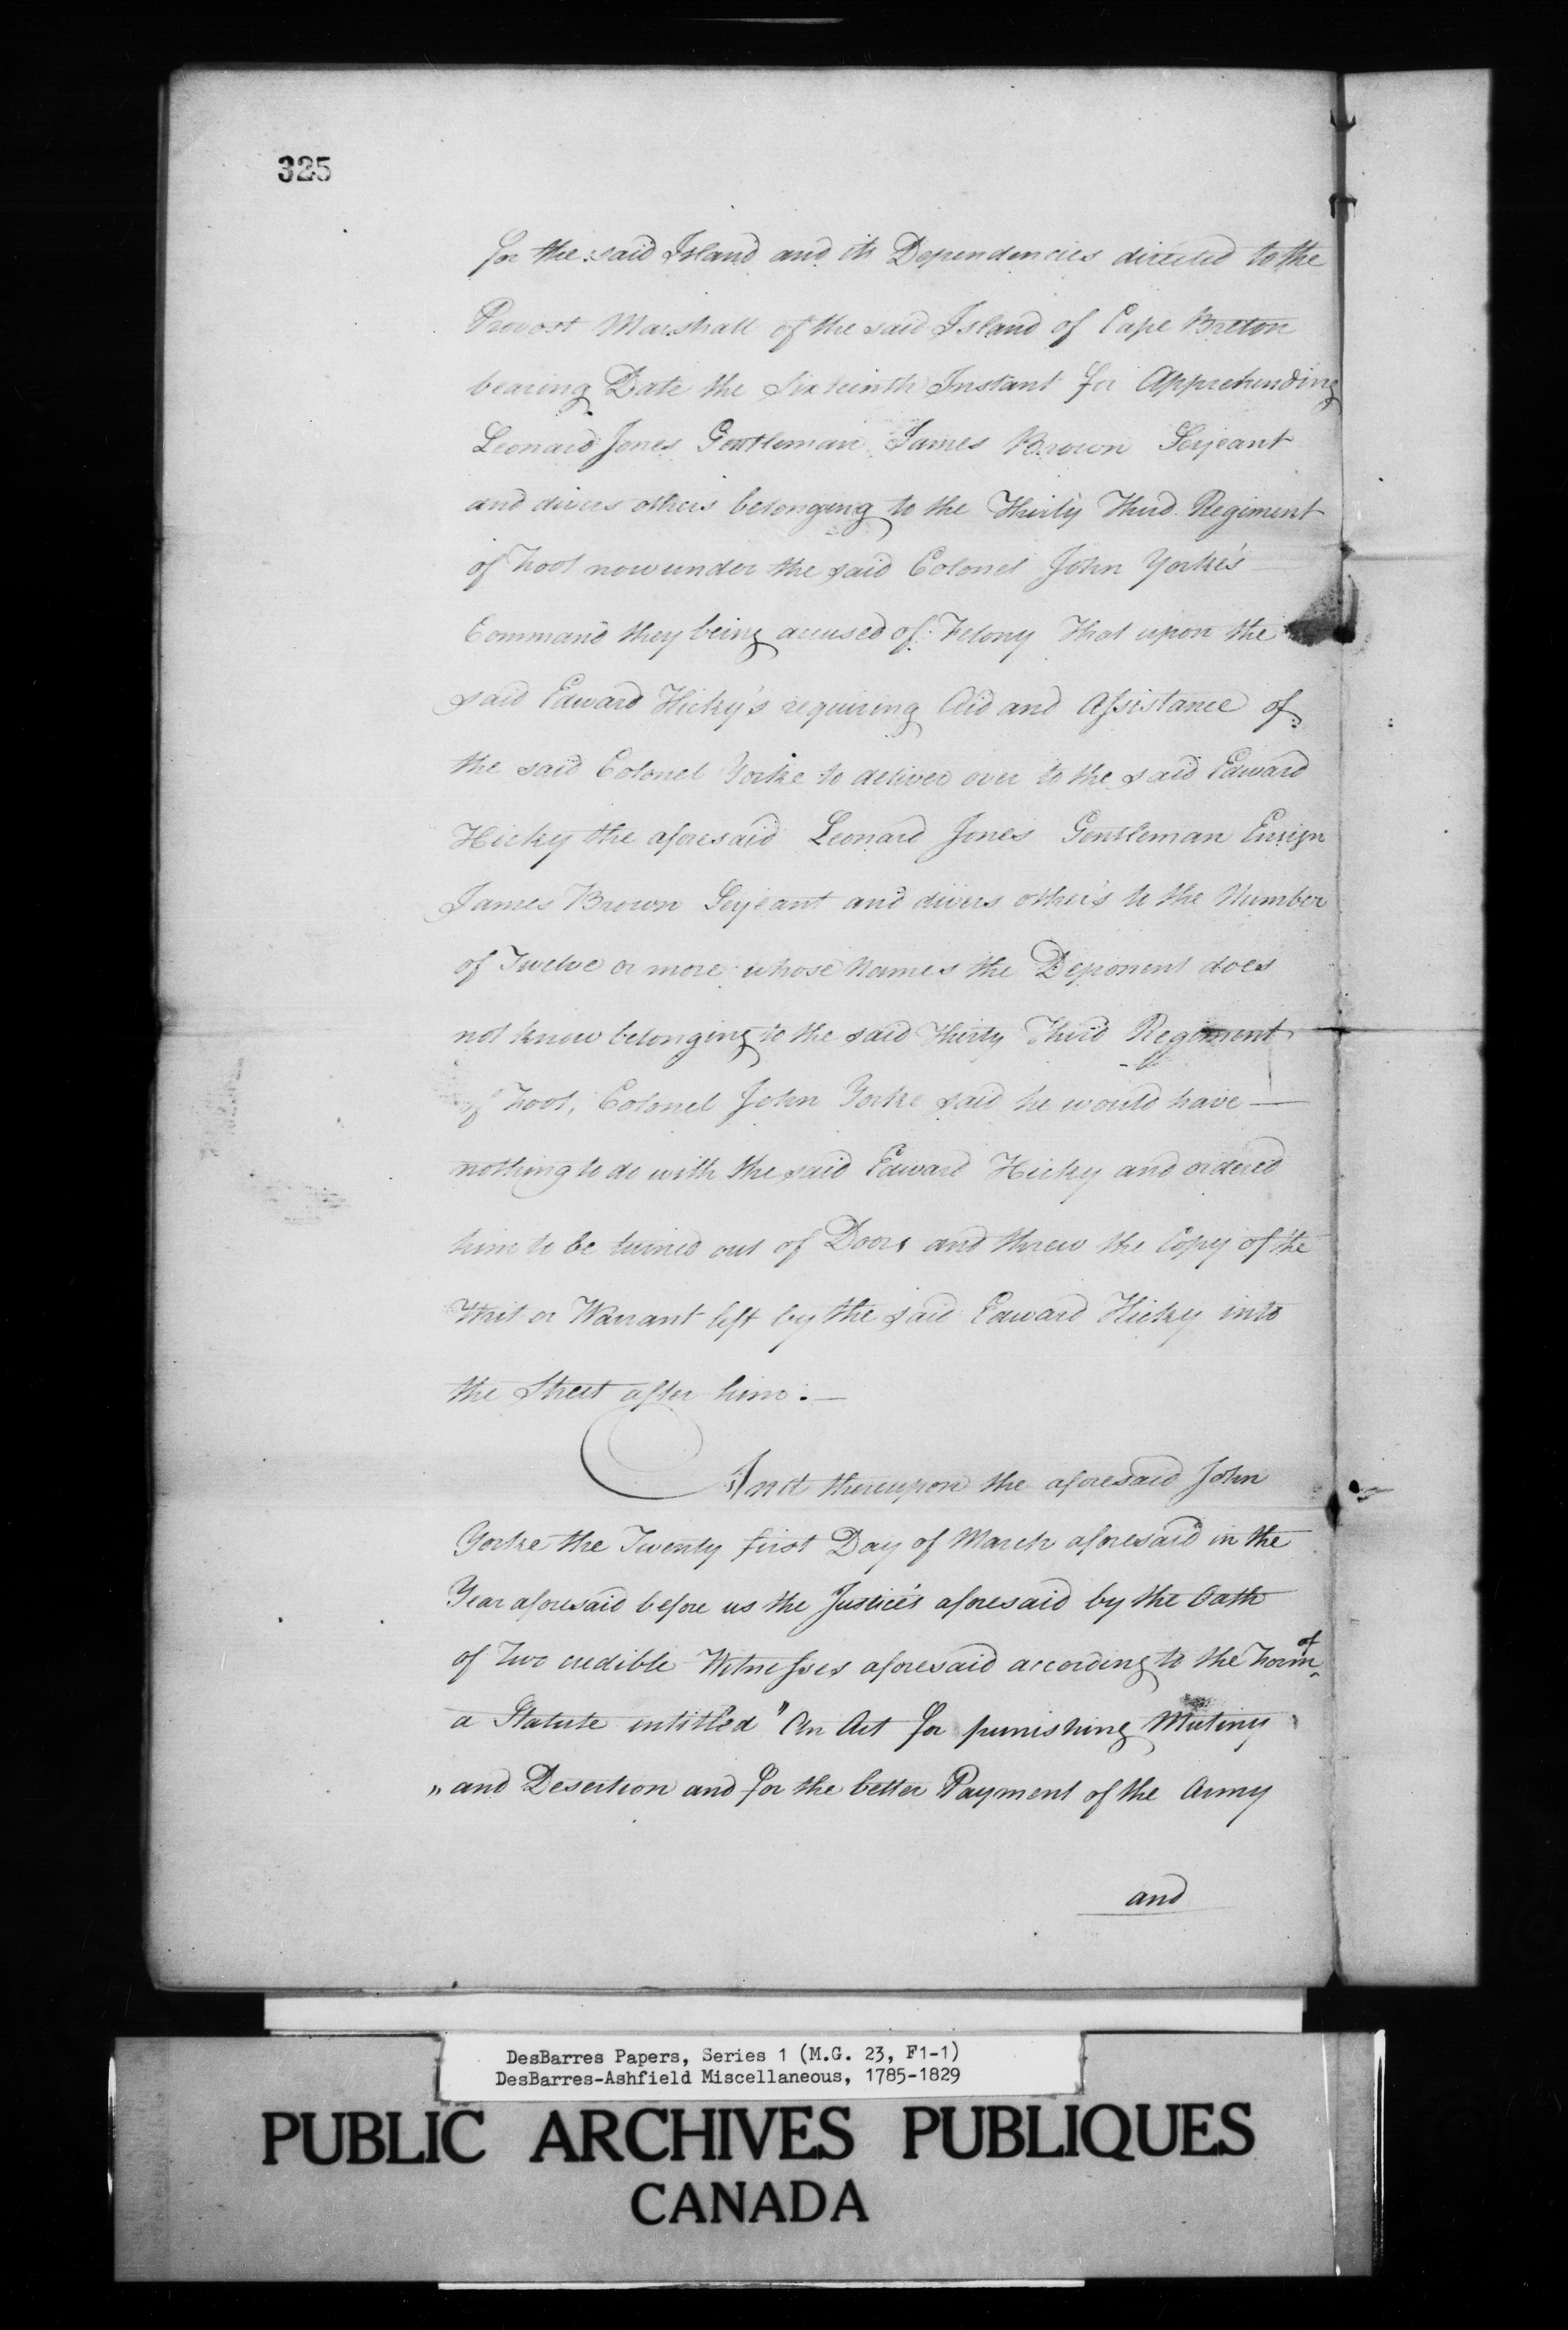 325
for the said Island and its Dependencies directed to the
Provost Marshall of the said Island of Cape Breton
bearing Date the Sixteenth Instant for Apprehending
Leonard Jones Gentleman James Brown Serjeant
and divers others belonging to the Thirty Third Regiment
of Foot now under the said Colonel John Yorke's
Command they being accused of Felony That upon the
said Edward Hicky's requiring Aid and Assistance of
the said Colonel Yorke to deliver over to the said Edward
Hicky the aforesaid Leonard Jones Gentleman Ensign
James Brown Serjeant and divers other's to the Number
of Twelve or more whose Names the Deponent does
not know belonging to the said Thirty Third Regiment
of Foot, Colonel John Yorke said he would have
nothing to do with the said Edward Hicky and ordered
him to be turned out of Doors and threw the Copy of the
Writ or Warrant left by the said Edward Hicky into
the Street after him.
And thereupon the aforesaid John
Yorke the Twenty first Day of March aforesaid in the
Year aforesaid before us the Justice's aforesaid by the Oath
of two credible Witnesses aforesaid according to the Form of
a Statute intitled "An Act for punishing Mutiny
" and Desertion and for the better Payment of the Army
and
DesBarres Papers, Series 1 (M.G. 23, F1-1)
DesBarres-Ashfield Miscellaneous, 1785-1829
PUBLIC ARCHIVES PUBLIQUES
CANADA